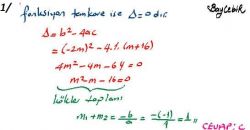 1/ fonksiyon tamkare ise Δ=0 dır
Boylebik
Δ = b² - 4ac
= (-2m)² - 4.1.(m+16)
4m² - 4m - 64 = 0
m² - m - 16 = 0
kökler toplamı
m₁ + m₂ = -b/a = -(-1)/1 = 1 //
CEVAP: C